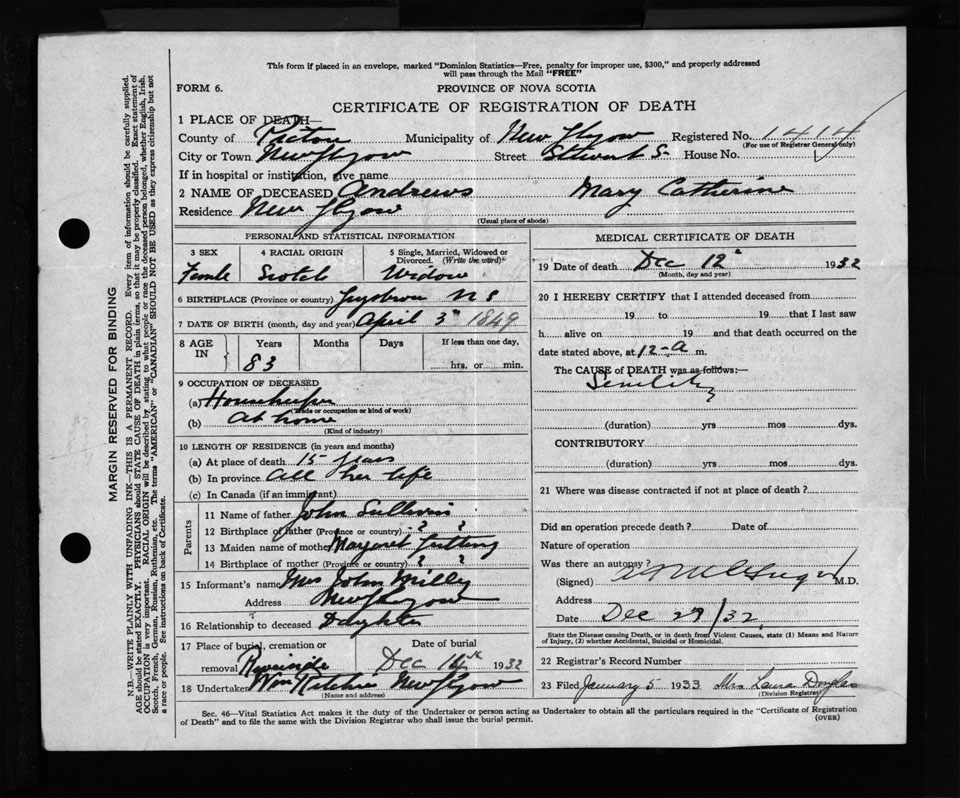 This form if placed in an envelope, marked "Dominion Statistics—Free, penalty for improper use, $300," and properly addressed
will pass through the Mail "FREE"
FORM 6.
PROVINCE OF NOVA SCOTIA
CERTIFICATE OF REGISTRATION OF DEATH
1 PLACE OF DEATH—
County of Pictou Municipality of New Glasgow Registered No. 1414
(For use of Registrar General only)
City or Town New Glasgow Street Stewart S House No.
If in hospital or institution, give name
2 NAME OF DECEASED Andrews Mary Catherine
Residence New Glasgow
(Usual place of abode)
PERSONAL AND STATISTICAL INFORMATION
3 SEX 4 RACIAL ORIGIN 5 Single, Married, Widowed or
Divorced. (Write the word)
Female Scotch Widow
6 BIRTHPLACE (Province or country) N S
7 DATE OF BIRTH (month, day and year) April 3 1849
8 AGE IN Years Months Days If less than one day,
83 hrs. or min.
9 OCCUPATION OF DECEASED
(a) Housekeeper
(Trade or occupation or kind of work)
(b) At home
(Kind of industry)
10 LENGTH OF RESIDENCE (in years and months)
(a) At place of death 15 years
(b) In province all her life
(c) In Canada (if an immigrant)
Parents
11 Name of father John Sullivan
12 Birthplace of father (Province or country) ? ?
13 Maiden name of mother Margaret
14 Birthplace of mother (Province or country) ? ?
15 Informant's name Mrs John
Address New Glasgow
16 Relationship to deceased Daughter
17 Place of burial, cremation or Date of burial
removal Riverside Dec 14th 1932
18 Undertaker Wm Ritchie New Glasgow
(Name and address)
MEDICAL CERTIFICATE OF DEATH
19 Date of death Dec 12 1932
(Month, day and year)
20 I HEREBY CERTIFY that I attended deceased from
19 to 19 that I last saw
h alive on 19 and that death occurred on
the date stated above, at 12-A m.
The CAUSE of DEATH was as follows:—
Senility
(duration) yrs mos dys.
CONTRIBUTORY
(duration) yrs mos dys.
21 Where was disease contracted if not at place of death?
Did an operation precede death? Date of
Nature of operation
Was there an autopsy?
(Signed) M.D.
Address
Date Dec 29/32
State the Disease causing Death, or in death from Violent Causes, state (1) Means and Nature
of Injury, (2) whether Accidental, Suicidal or Homicidal.
22 Registrar's Record Number
23 Filed January 5 1933 Mrs Laura Douglas
(Division Registrar)
Sec. 46—Vital Statistics Act makes it the duty of the Undertaker or person acting as Undertaker to obtain all the particulars required in the "Certificate of Registration
of Death" and to file the same with the Division Registrar who shall issue the burial permit.
(OVER)
MARGIN RESERVED FOR BINDING
N.B.—WRITE PLAINLY WITH UNFADING INK—THIS IS A PERMANENT RECORD. Every item of information should be carefully supplied.
AGE should be stated EXACTLY. PHYSICIANS should STATE CAUSE OF DEATH in plain terms, so that it may be properly classified. Exact statement of
OCCUPATION is very important. RACIAL ORIGIN will be described by stating to what people or race the deceased person belonged, whether English, Irish,
Scotch, French, German, Russian, Ruthenian, etc. The terms "AMERICAN" or "CANADIAN" SHOULD NOT BE USED as they express citizenship but not
a race or people. See instructions on back of Certificate.